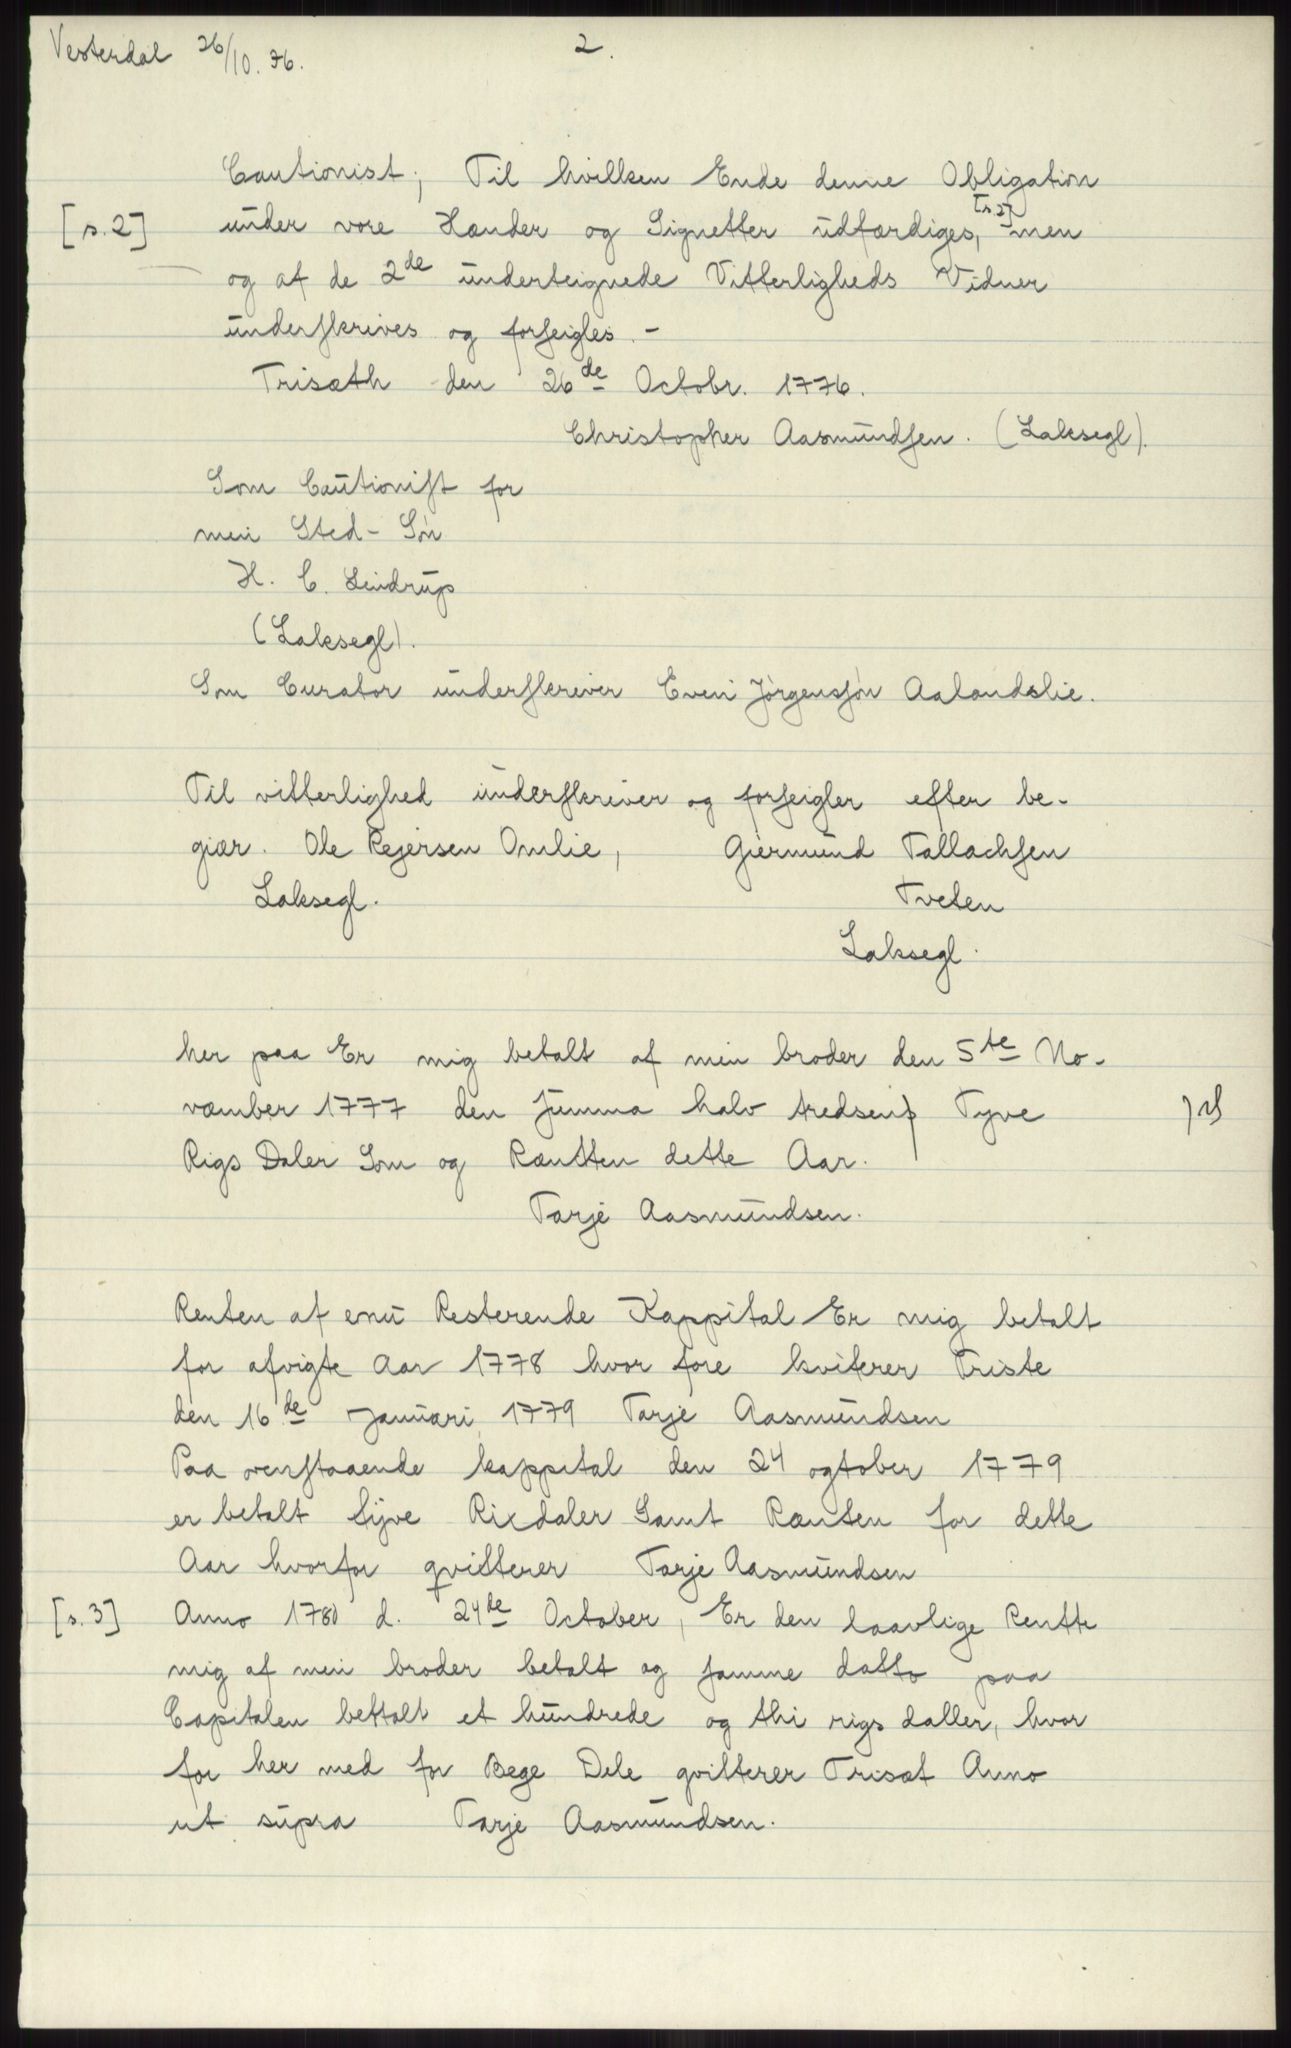 Vesterdal 26/10. 76.
2.
Cautionist; Til hvilken Ende denne Obligation
[s.2] under vore Hænder og Signetter udfærdiges, [s.2] men
og af de 2de underteignede Vitterligheds Vidner
underskrives og forseigles. -
Trisæth den 26de Octobr. 1776.
Christopher Aasmundsen. (Laksegl).
Som Cautionist for
min Sted-Søn
H. C. Lindrup
(Laksegl).
Som Curator underskriver Even Jørgensøn Aalandslie.
Til vitterlighed underskriver og forseigler efter be-
giær. Ole Rejersen Omlie, Giermund Tallachsen
Laksegl. Tveten
Laksegl.
her paa Er mig betalt af min broder den 5te No-
væmber 1777 den summa halv tredsens Tyve
Rigs Daler Som og Ræntten dette Aar.
Tarje Aasmundsen.
Renten af enu Resterende Kappital Er mig betalt
for afvigte Aar 1778 hvor fore kviterer Triste
den 16de Januari 1779 Tarje Aasmundsen
Paa ovenstaaende kappital den 24 ogtober 1779
er betalt tyve Rixdaler Samt Rænten for dette
Aar hvorfor qvitterer Tarje Aasmundsen
[s.3] Anno 1780 d. 24de October, Er den laavlige Rentte
mig af min broder betalt og samme datto paa
Capitalen bettalt et hundrede og thi rigs daller, hvor
for her med for Bege Dele qvitterer Trisæt Anno
ut supra Tarje Aasmundsen.